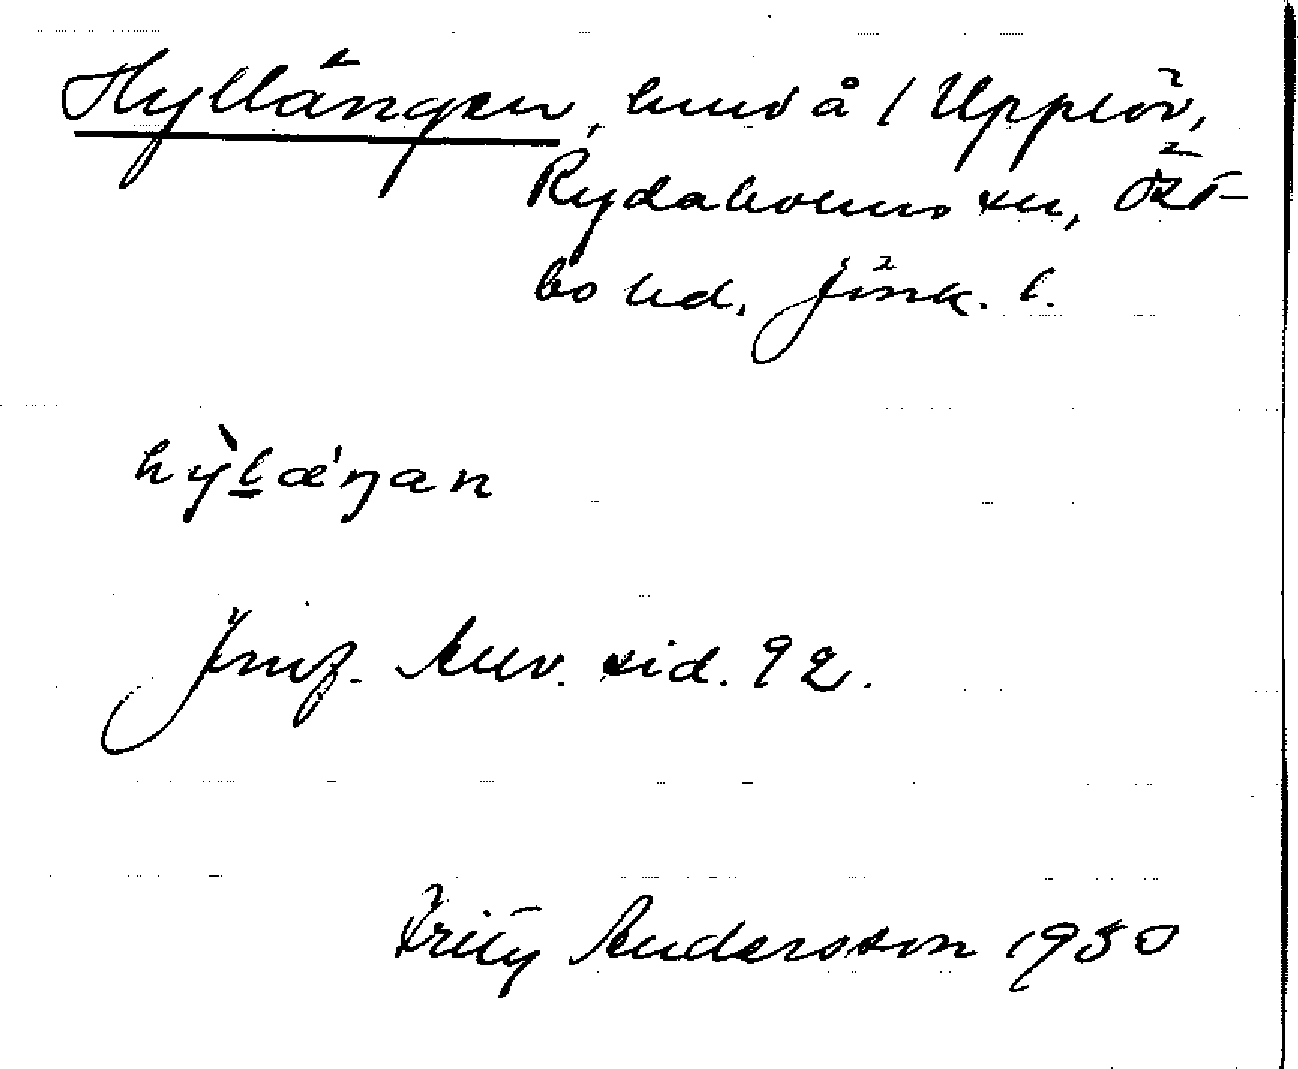 Hyllängen, hmd å / Upplöv,
Rydaholms sn, Öst-
bo hd, Jönk. l.
hy̆̀l̲æ'ŋan
Jmf. Avv. sid. 92.
Fritz Andersson 1930